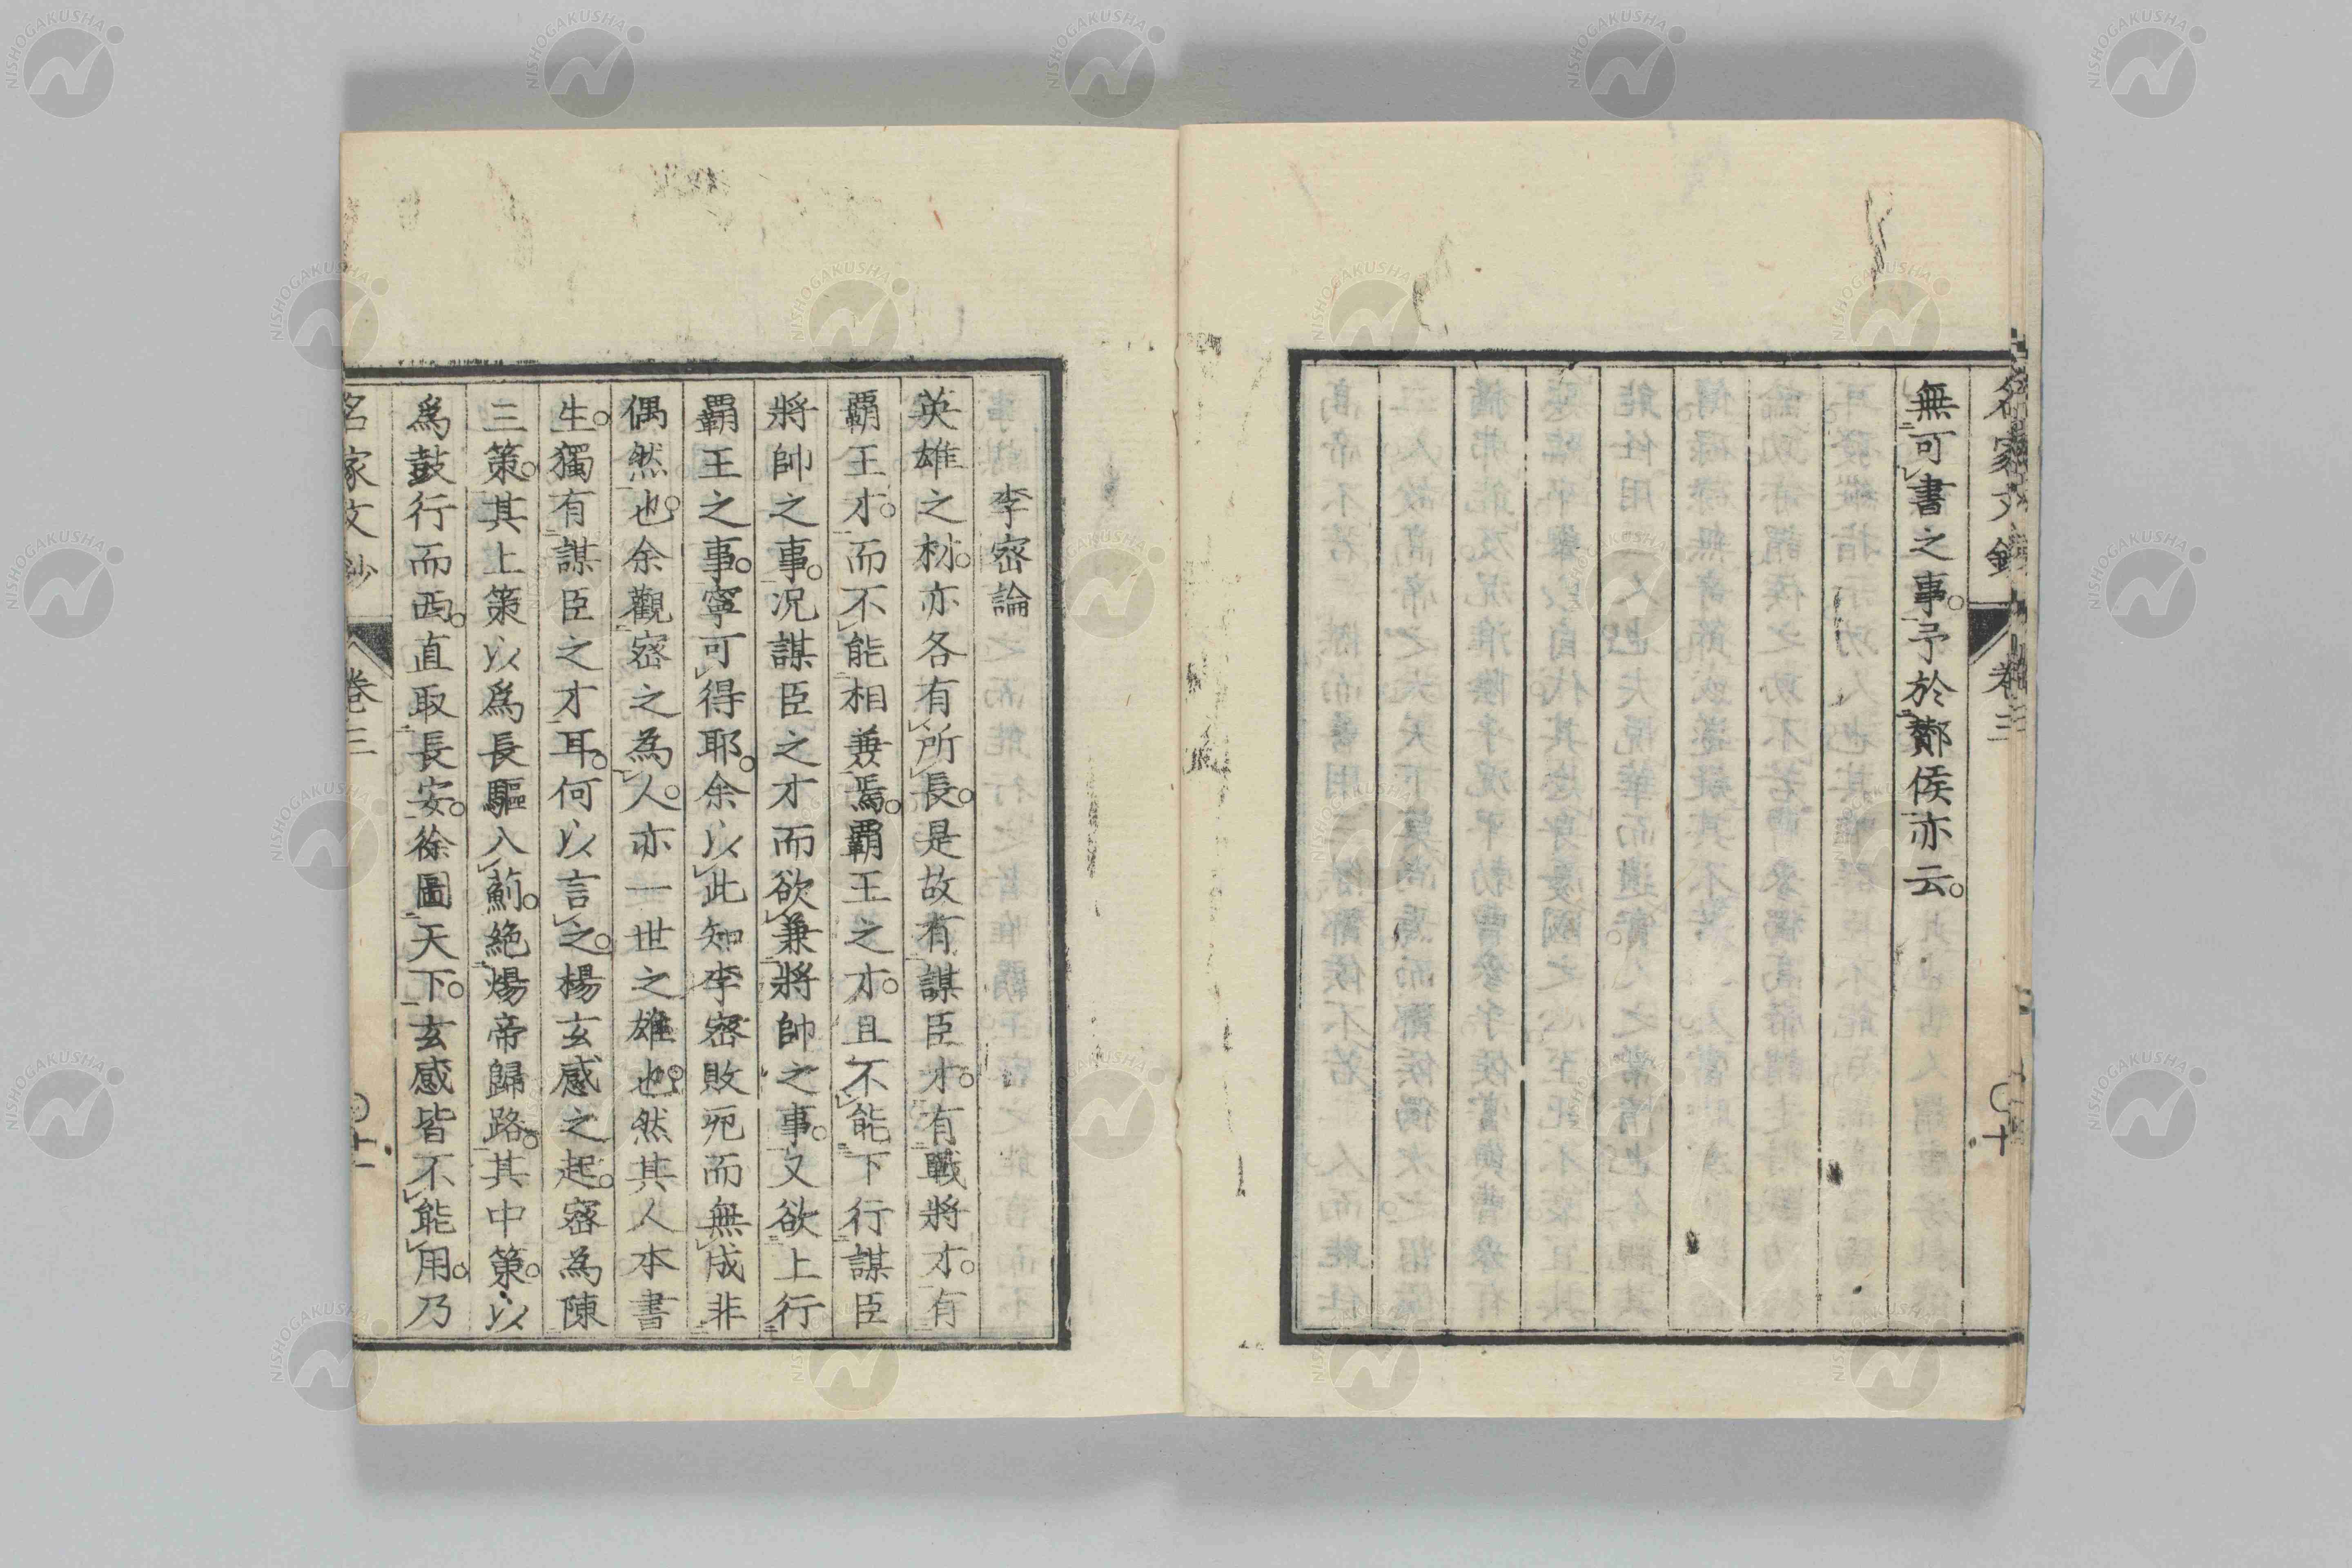 名家文鈔
卷三
十
無可書之事。予於酇侯亦云。
李密論
英雄之材。亦各有所長。是故有謀臣才。有戰將才。有
覇王才。而不能相兼焉。覇王之才。且不能下行謀臣
將帥之事。况謀臣之才而欲兼將帥之事。又欲上行
覇王之事。寧可得耶。余以此知李密敗死而無成非
偶然也。余觀密之為人。亦一世之雄也。然其人本書
生。獨有謀臣之才耳。何以言之。楊玄感之起。密為陳
三策。其上策以爲長驅入薊。絕煬帝歸路。其中策。以
爲鼓行而西。直取長安。徐圖天下。玄感皆不能用。乃
名家文鈔
卷三
十一
NISHOGAKUSHA